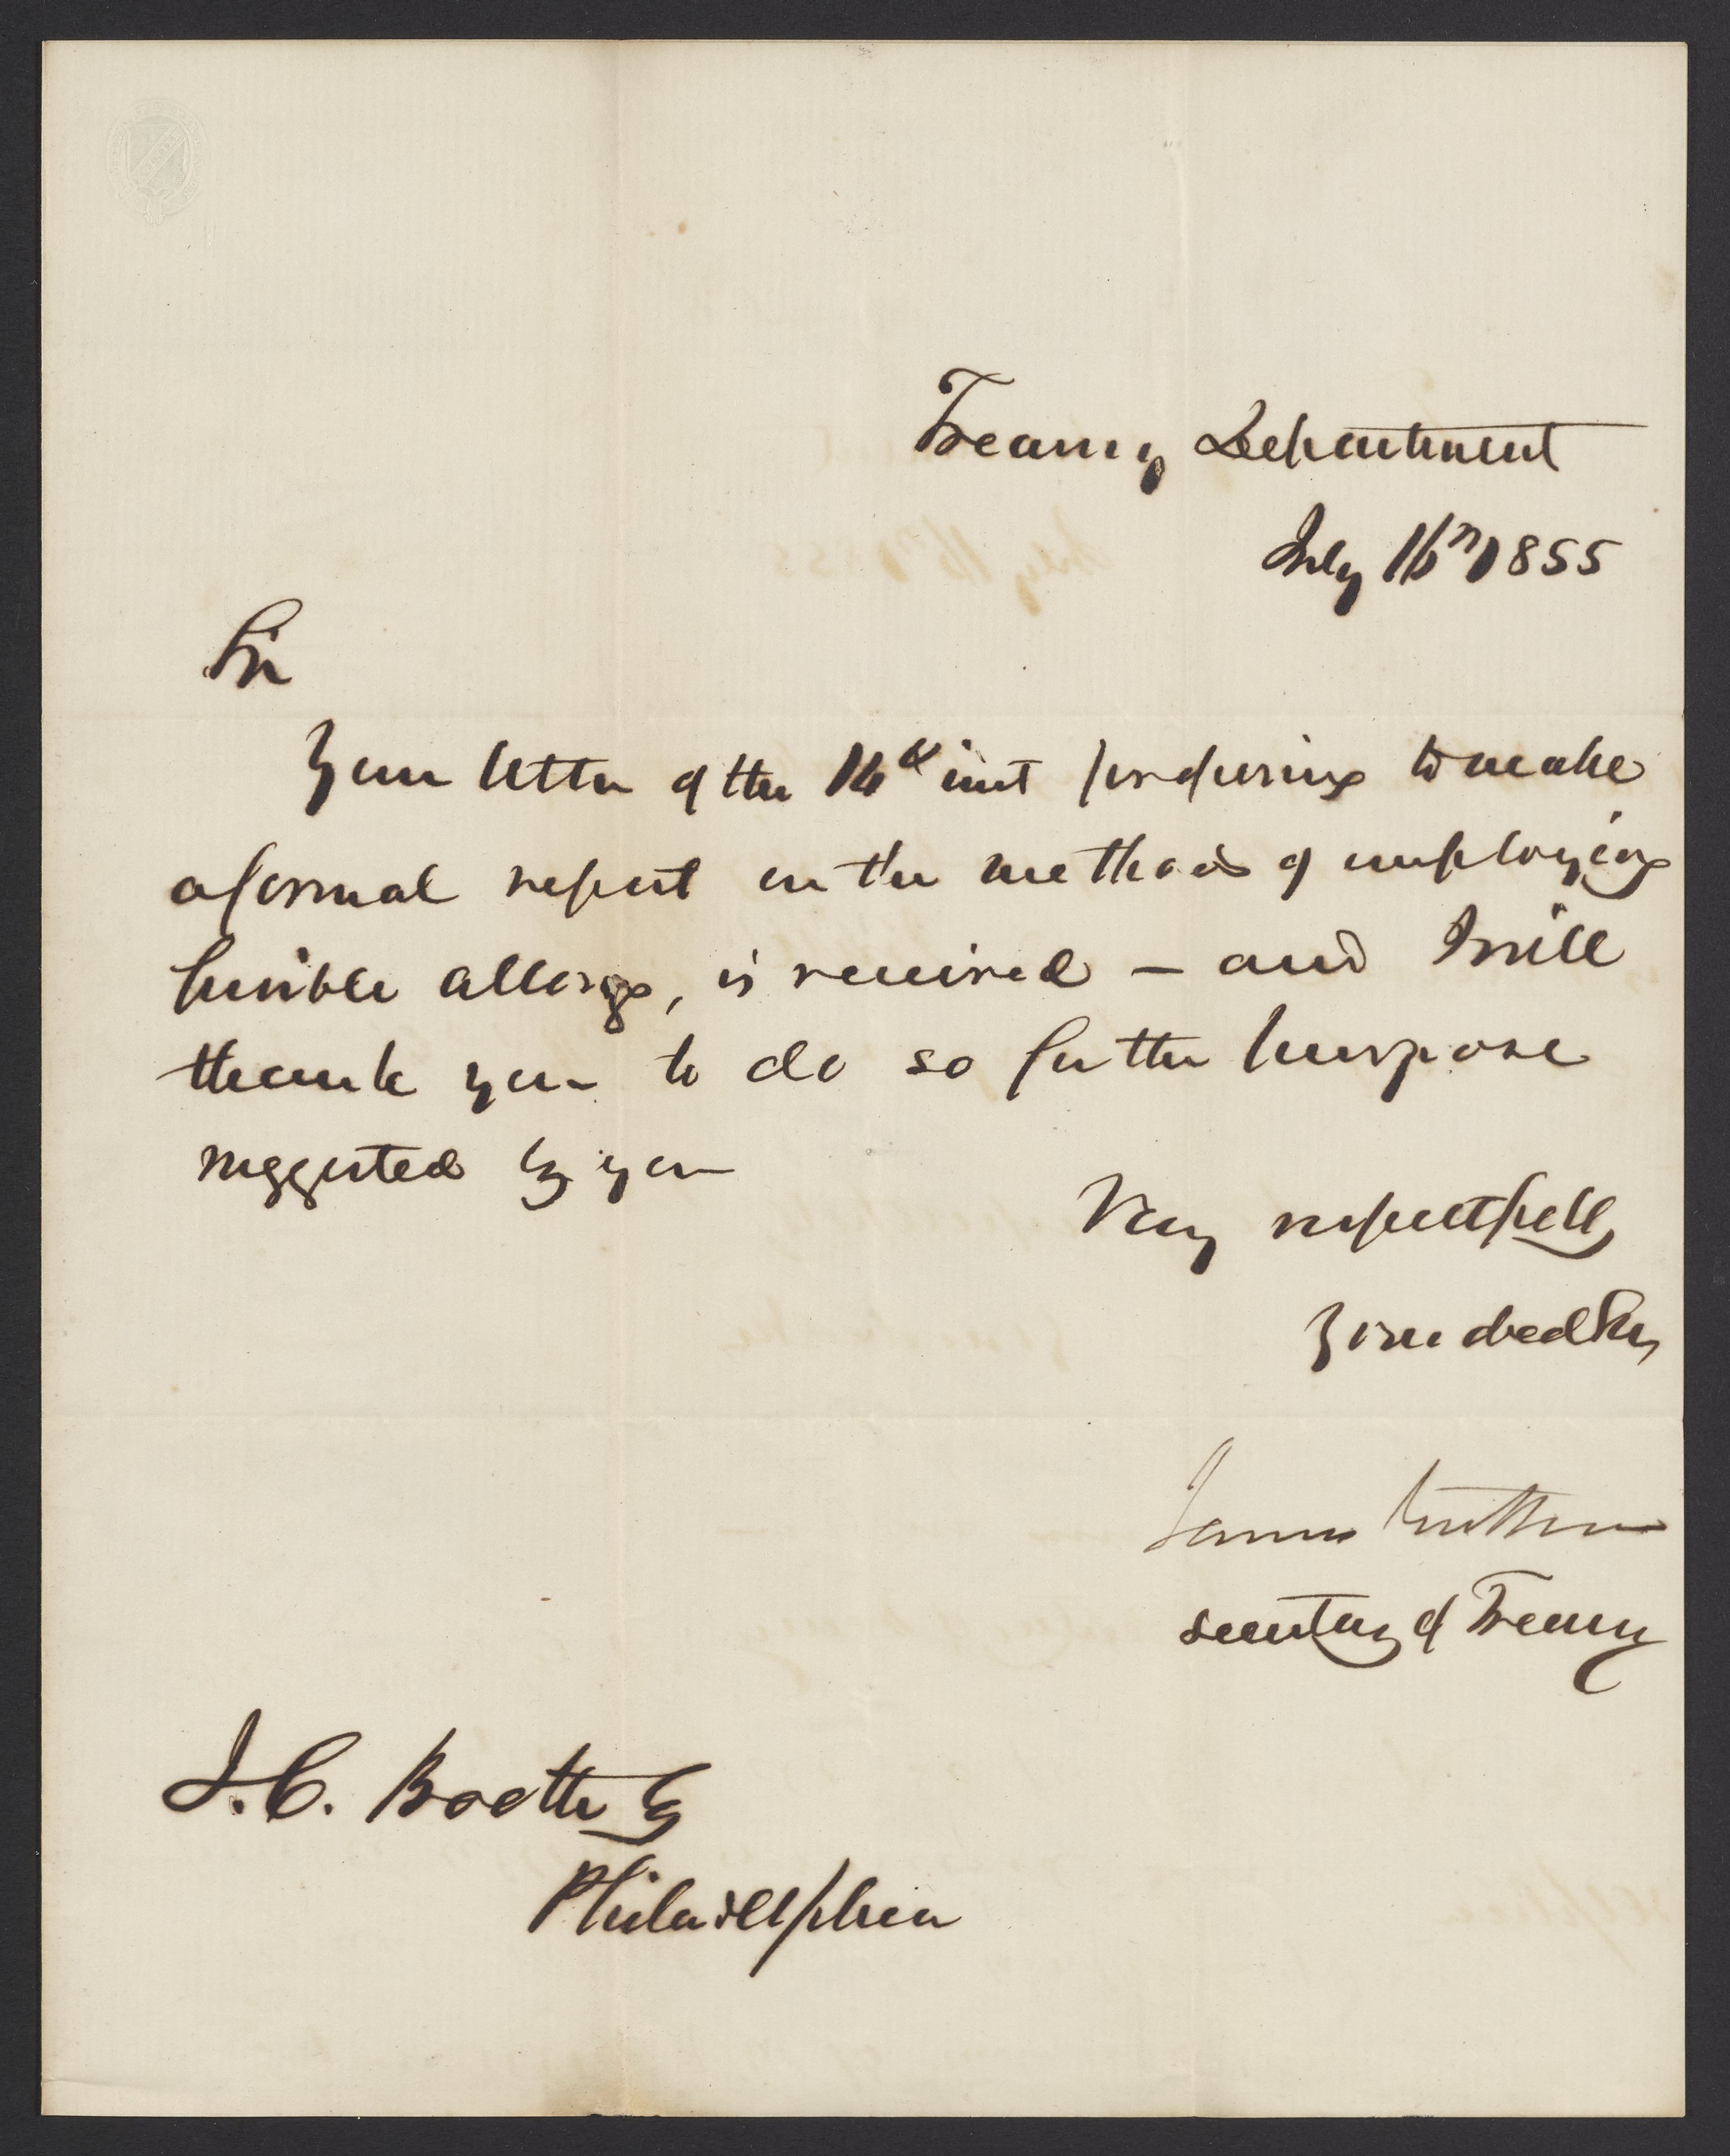 Treasury Department
July 16th 1855
Sir
Your letter of the 14th inst proposing to make
a formal report on the methods of employing
fusible alloys, is received – and I will
thank you to do so for the purpose
suggested by you
Very respectfully
Your obed Ser
James Guthrie
Secretary of Treasury
J. C. Booth Esq
Philadelphia